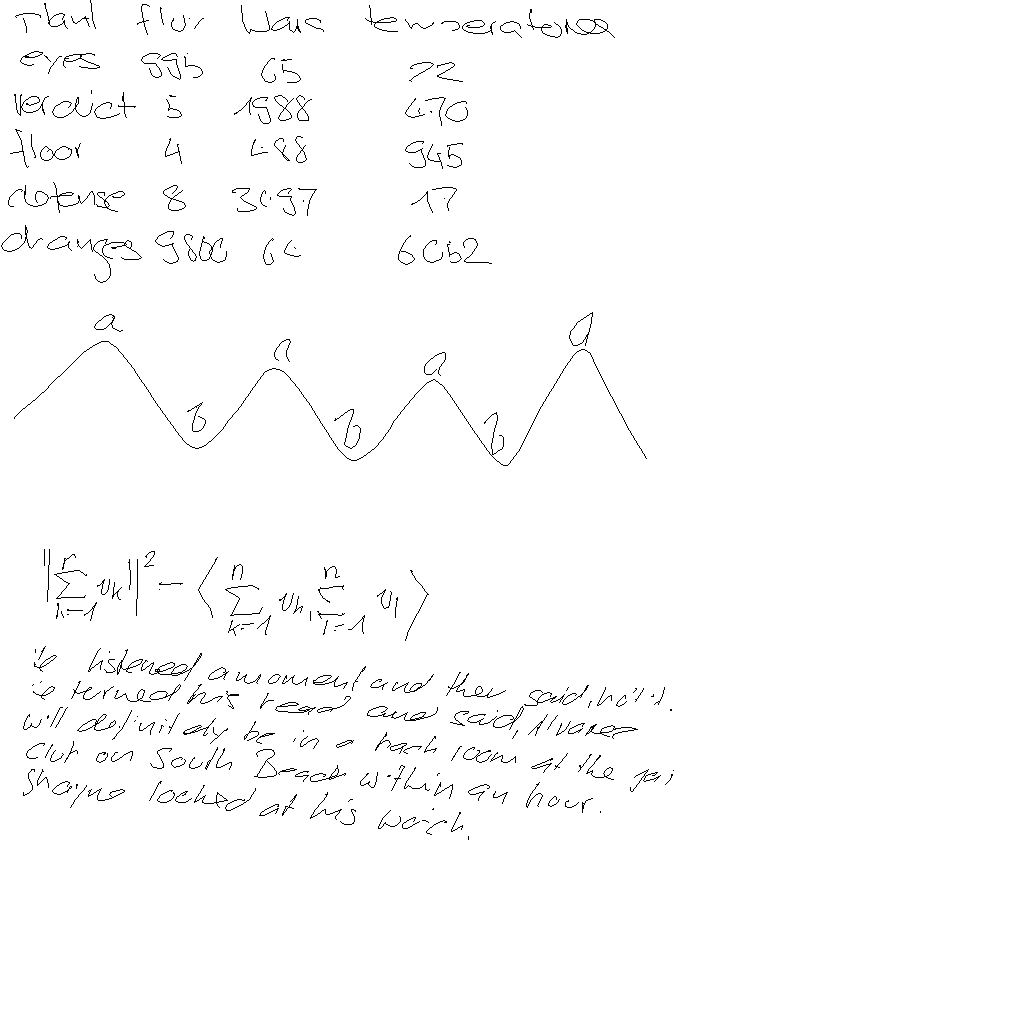 Plant flux Wars temperatures
eyes 995 65 72
verdict 5 1988 470
floor 4 488 945
defense 8 3097 17
oranges 9800 64 6052
a a a a
b b b
‖∑_{k=1}^{n} v_k‖² = ⟨∑_{k=1}^{n} v_k, ∑_{l=1}^{n} v_l⟩
He listened a moment and then said, hold it.
He turned his head and said, Alvarez
will definitely be in a back room at the jai
club on South Beach within an hour.
Shayne looked at his watch.